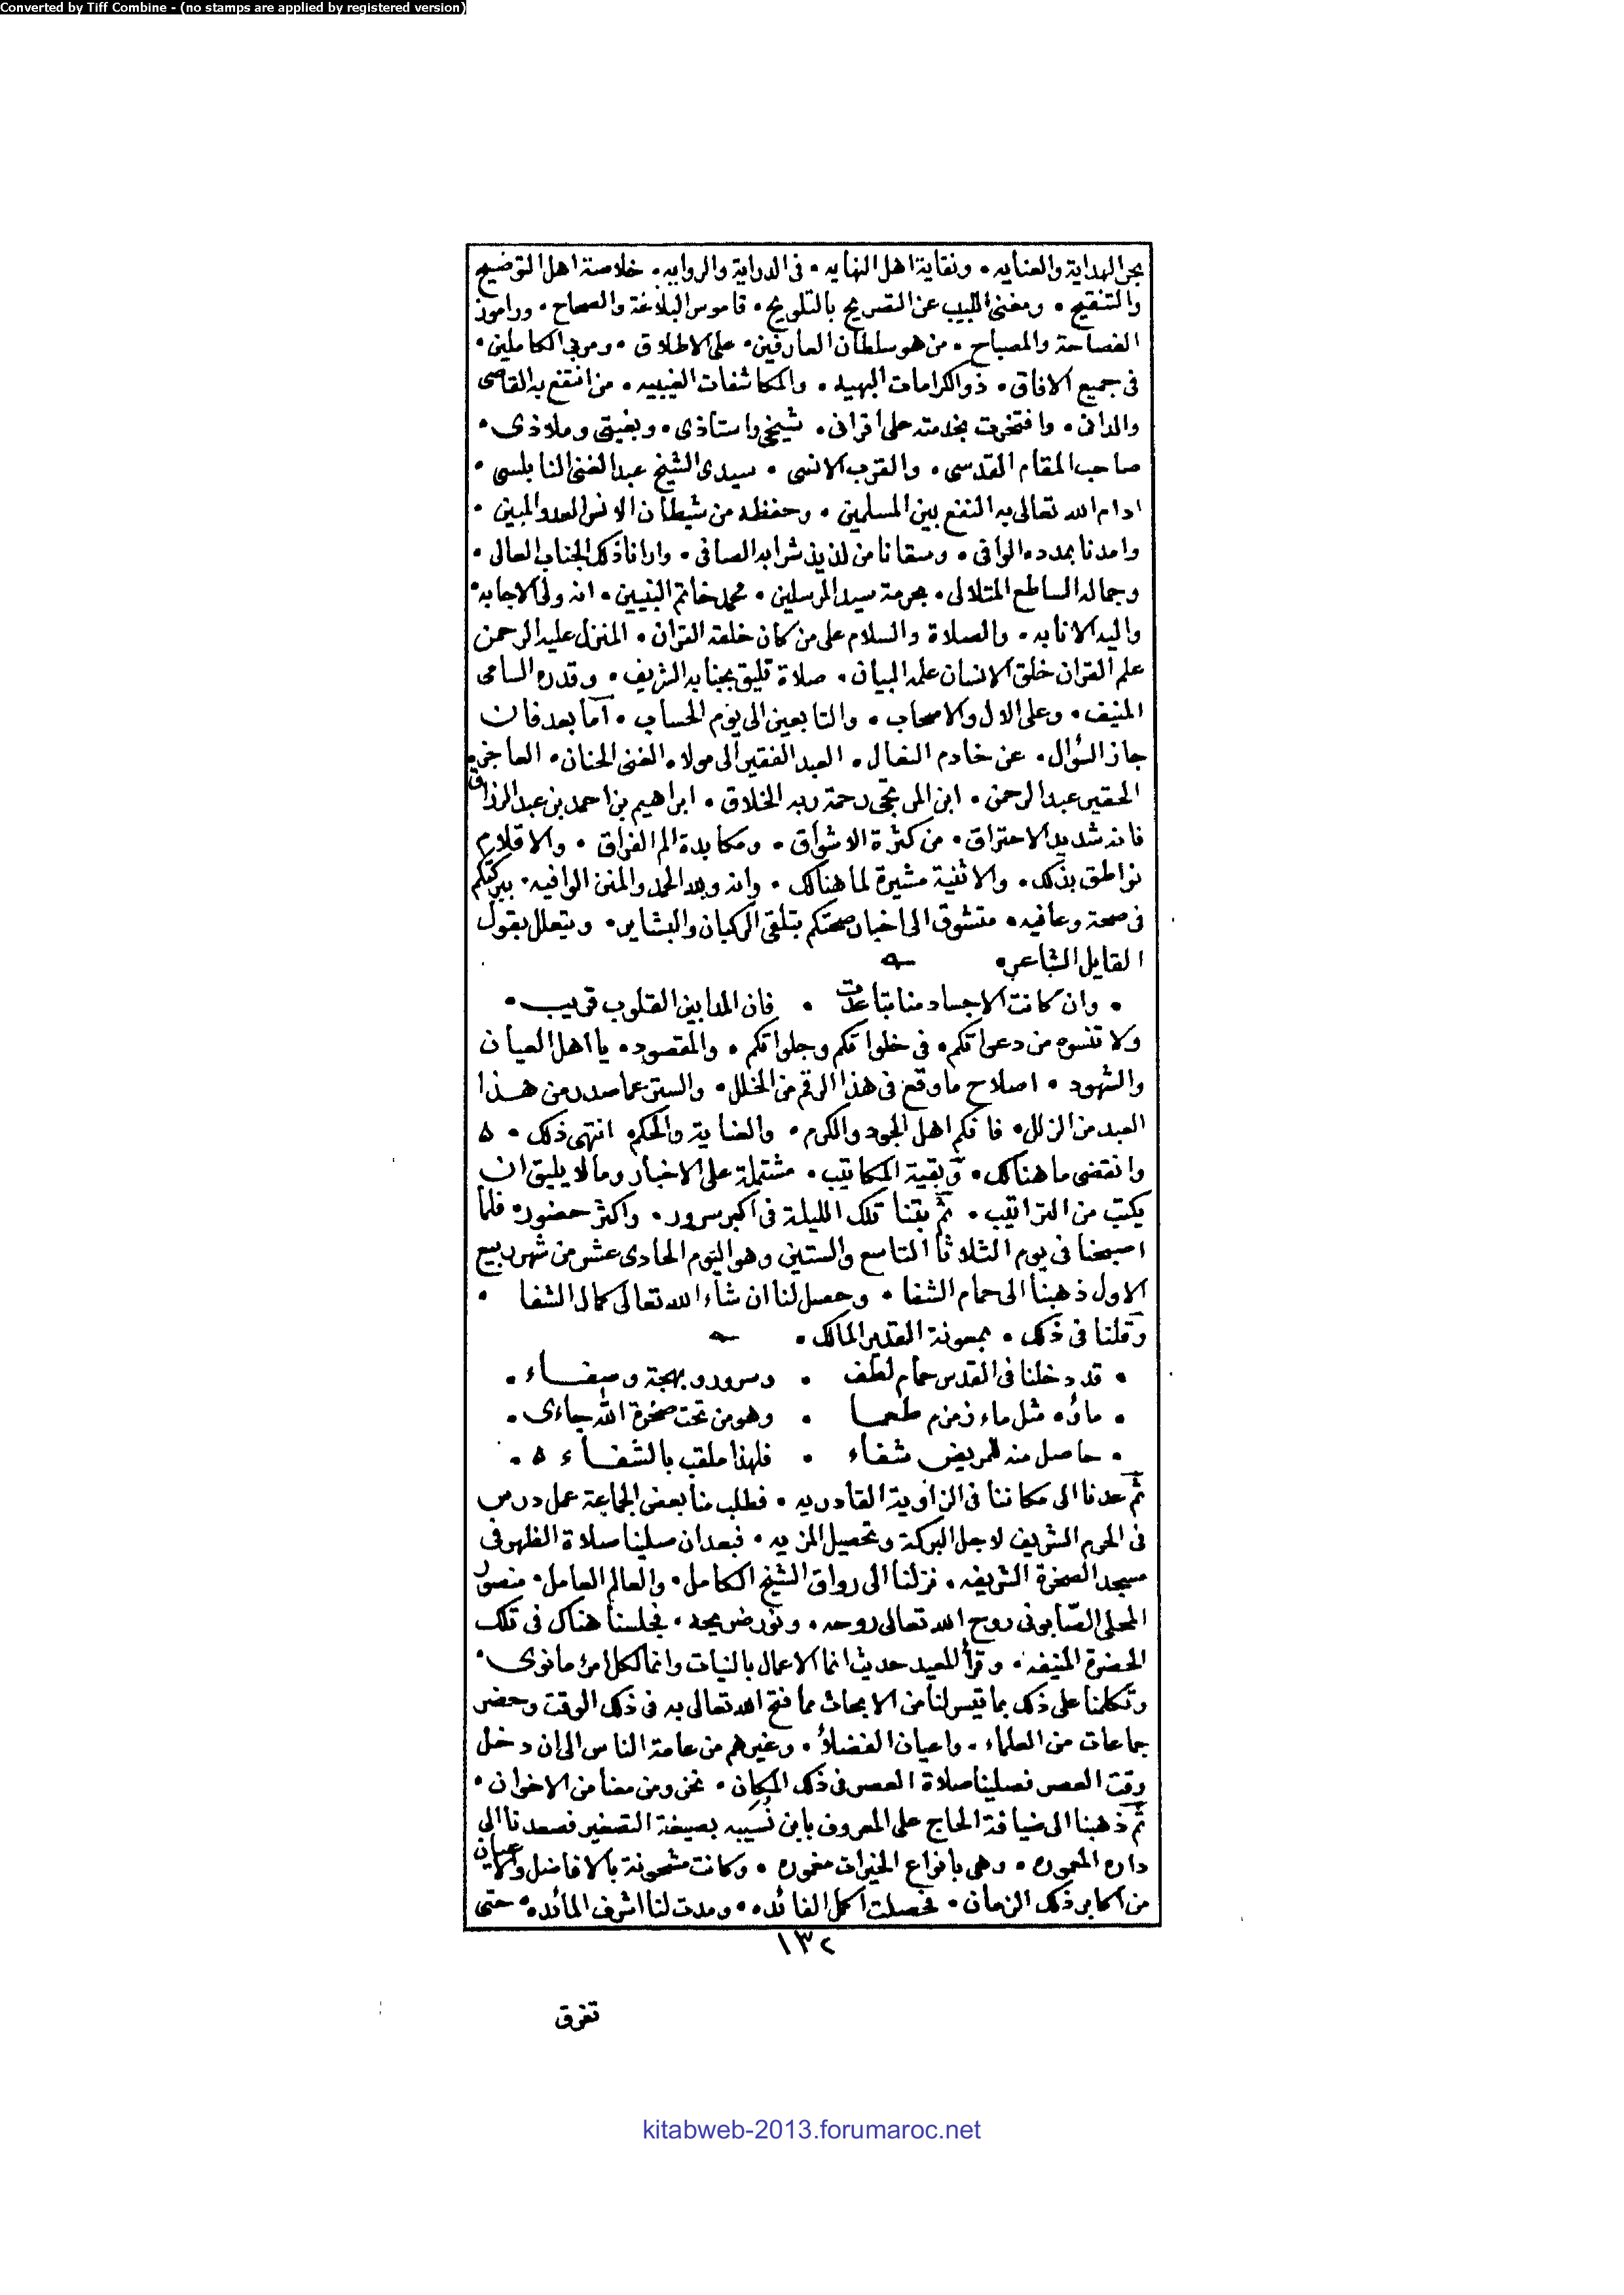 Converted by Tiff Combine - (no stamps are applied by registered version)
بحر الهداية والعنايه • ونقاية اهل النهايه • فى الدراية والروايه • خلاصة اهل التوضيح
والتنقيح • ومغنى اللبيب عن التصريح بالتلويح • قاموس البلاغة والصحاح • وراموز
الفصاحة والمصباح • من هو سلطان العارفين • على الاطلاق • ومربى الكاملين •
فى جميع الافاق • ذو الكرامات البهيه • والمكاشفات الغيبيه • من انتفع به القاصى
والدانى • وافتخرت بخدمته على اقرانى • شيخى واستاذى • وبغيتى وملاذى •
صاحب المقام القدسى • والقرب الانسى • سيدى الشيخ عبد الغنى النابلسى •
ادام الله تعالى به النفع بين المسلمين • وحفظه من شيطان الانس العدو المبين •
وامدنا بمدده الوافى • وسقانا من لذيذ شرابه الصافى • وارانا ذلك الجناب العال •
وجماله الساطع المتلالى • بحرمة سيد المرسلين • محمد خاتم النبيين • انه ولى الاجابه •
واليه الانابه • والصلاة والسلام على من كان خلقه القران • المنزل عليه الرحمن
علم القران خلق الانسان علمه البيان • صلاة تليق بجنابه الشريف • وقدره السامى
المنيف • وعلى الال والاصحاب • والتابعين الى يوم الحساب • اما بعد فان
جاز السؤال • عن خادم النعال • العبد الفقير الى مولاه الغنى الحنان • العاجز
الحقير عبد الرحمن • ابن المرتجى رحمة ربه الخلاق • ابراهيم بن احمد بن عبد الرزاق
فانه شديد الاحتراق • من كثرة الاشواق • ومكابدة الم الفراق • والاقلام
نواطق بذلك • والاثنية مشيرة لما هنالك • وانه ولله الحمد والمنن الوافيه • ببركتكم
فى صحة وعافيه • متشوق الى اخبار صحتكم بتلقى الركبان والبشاير • ويتعلل بقول
القايل الشاعر •
• وان كانت الاجساد منا تباعدت • فان المدا بين القلوب قريب •
ولا تنسوه من دعواتكم • فى خلواتكم وجلواتكم • والمقصود • يا اهل العيان
والشهود • اصلاح ما وقع فى هذا الرقم من الخلل • والستر عما صدر من هذا
العبد من الزلل • فانكم اهل الجود والكرم • والعناية والحكم انتهى ذلك • ه
وانقضى ما هنالك • وبقية المكاتيب • مشتملة على الاخبار وما لا يليق ان
يكتب من التراتيب • ثم بتنا تلك الليلة فى اكبر سرور • واكثر حضور • فلما
اصبحنا فى يوم الثلاثا التاسع والستين وهو اليوم الحادى عشر من شهر ربيع
الاول ذهبنا الى حمام الشفا • وحصل لنا ان شاء الله تعالى كمال الشفا •
وقلنا فى ذلك • بمعونة القدير المالك •
• قد دخلنا فى القدس حمام لطف • وسرور وبهجة وصفاء •
• ماؤه مثل ماء زمزم طعما • وهو من تحت صخرة الله جاءى •
• حاصل منه للمريض شفاء • فلهذا ملقب بالشفاء ه •
ثم عدنا الى مكاننا فى الزاوية القادريه • فطلب منا بعض الجماعة عمل درس
فى الحرم الشريف لاجل البركة وتحصيل المزيه • فبعد ان صلينا صلاة الظهر فى
مسجد الصخرة الشريفه • نزلنا الى رواق الشيخ الكامل • والعالم العامل • منصور
المحلى الصابونى روح الله تعالى روحه • ونور ضريحه • فجلسنا هناك فى تلك
الحضرة المنيفه • وقرأ المعيد حديث انما الاعمال بالنيات وانما لكل امرئ ما نوى •
وتكلمنا على ذلك بما تيسر لنا من الابحاث مما فتح الله تعالى به فى ذلك الوقت وحضر
جماعات من العلماء • واعيان الفضلاء • وغيرهم من عامة الناس الى ان دخل
وقت العصر فصلينا صلاة العصر فى ذلك المكان • نحن ومن معنا من الاخوان •
ثم ذهبنا الى ضيافة الحاج على المعروف بابن نُسَيبه بصيغة التصغير فصعدنا الى
داره المعموره • وهى بانواع الخيرات مغموره • وكانت مشحونة بالافاضل والاعيان
من اكابر ذلك الزمان • فحصلت اكمل الفائده • ومدت لنا اشرف المائده • حتى
١٣٢
تفرق
kitabweb-2013.forumaroc.net